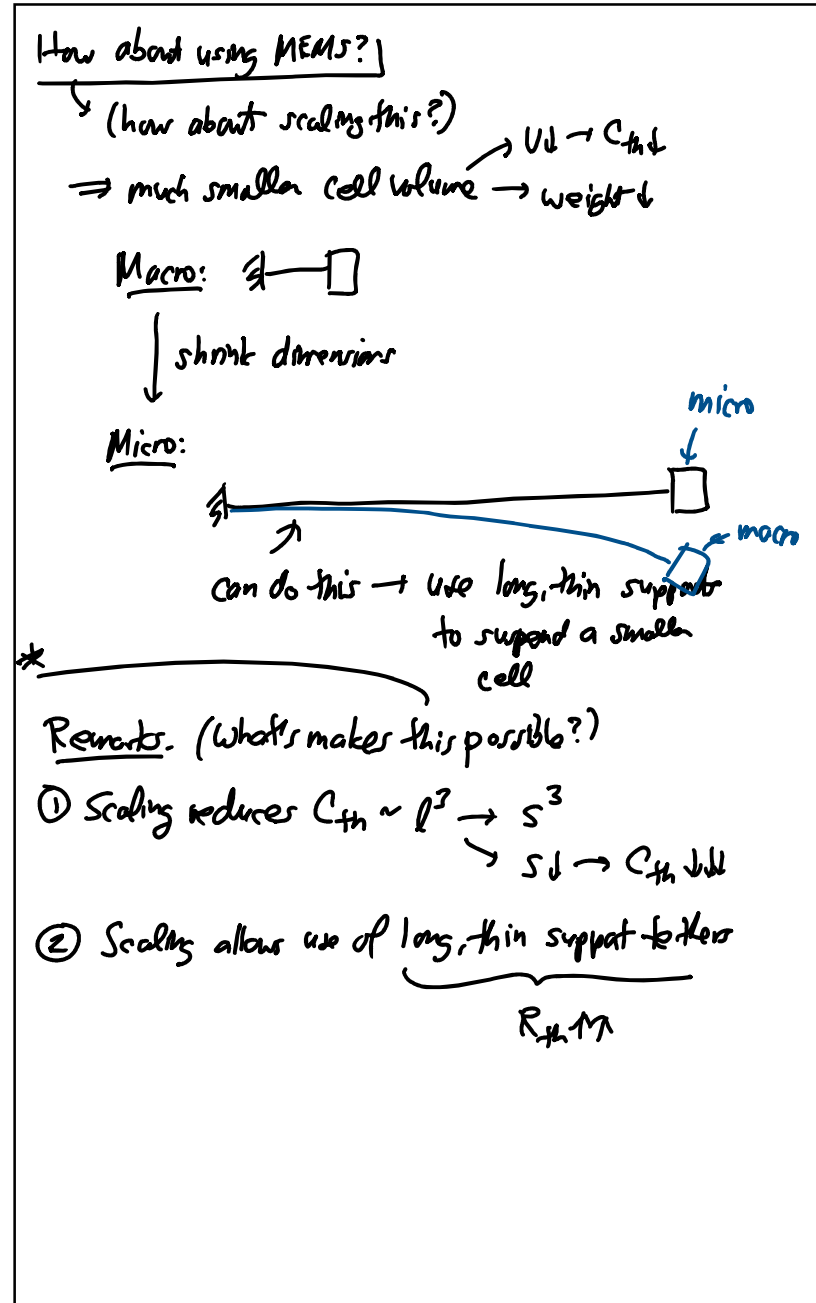 How about using MEMS?
(how about scaling this?)
⇒ much smaller cell volume → U↓ → C_th↓
→ weight↓
Macro:
shrink dimensions
Micro:
micro
macro
can do this → use long, thin supports
to suspend a smaller
cell
*
Remarks. (What's makes this possible?)
① Scaling reduces C_th ~ l³ → s³
s↓ → C_th ↓↓↓
② Scaling allows use of long, thin support tethers
R_th ↑↑